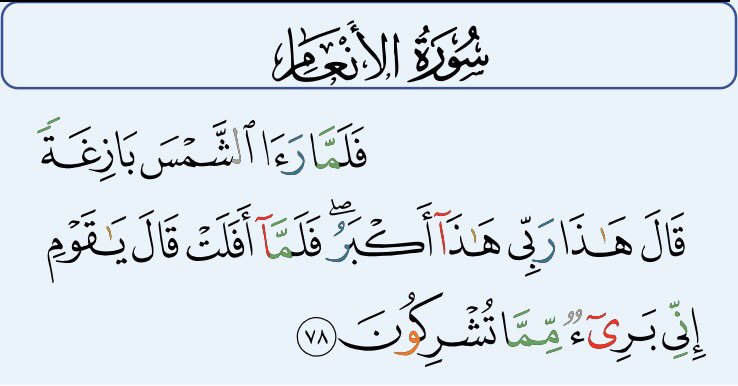 سُورَةُ الأَنْعَامِ
فَلَمَّا رَءَا ٱلشَّمْسَ بَازِغَةً
قَالَ هَٰذَا رَبِّي هَٰذَآ أَكْبَرُ ۖ فَلَمَّآ أَفَلَتْ قَالَ يَٰقَوْمِ
إِنِّي بَرِيٓءٌ مِّمَّا تُشْرِكُونَ ٧٨